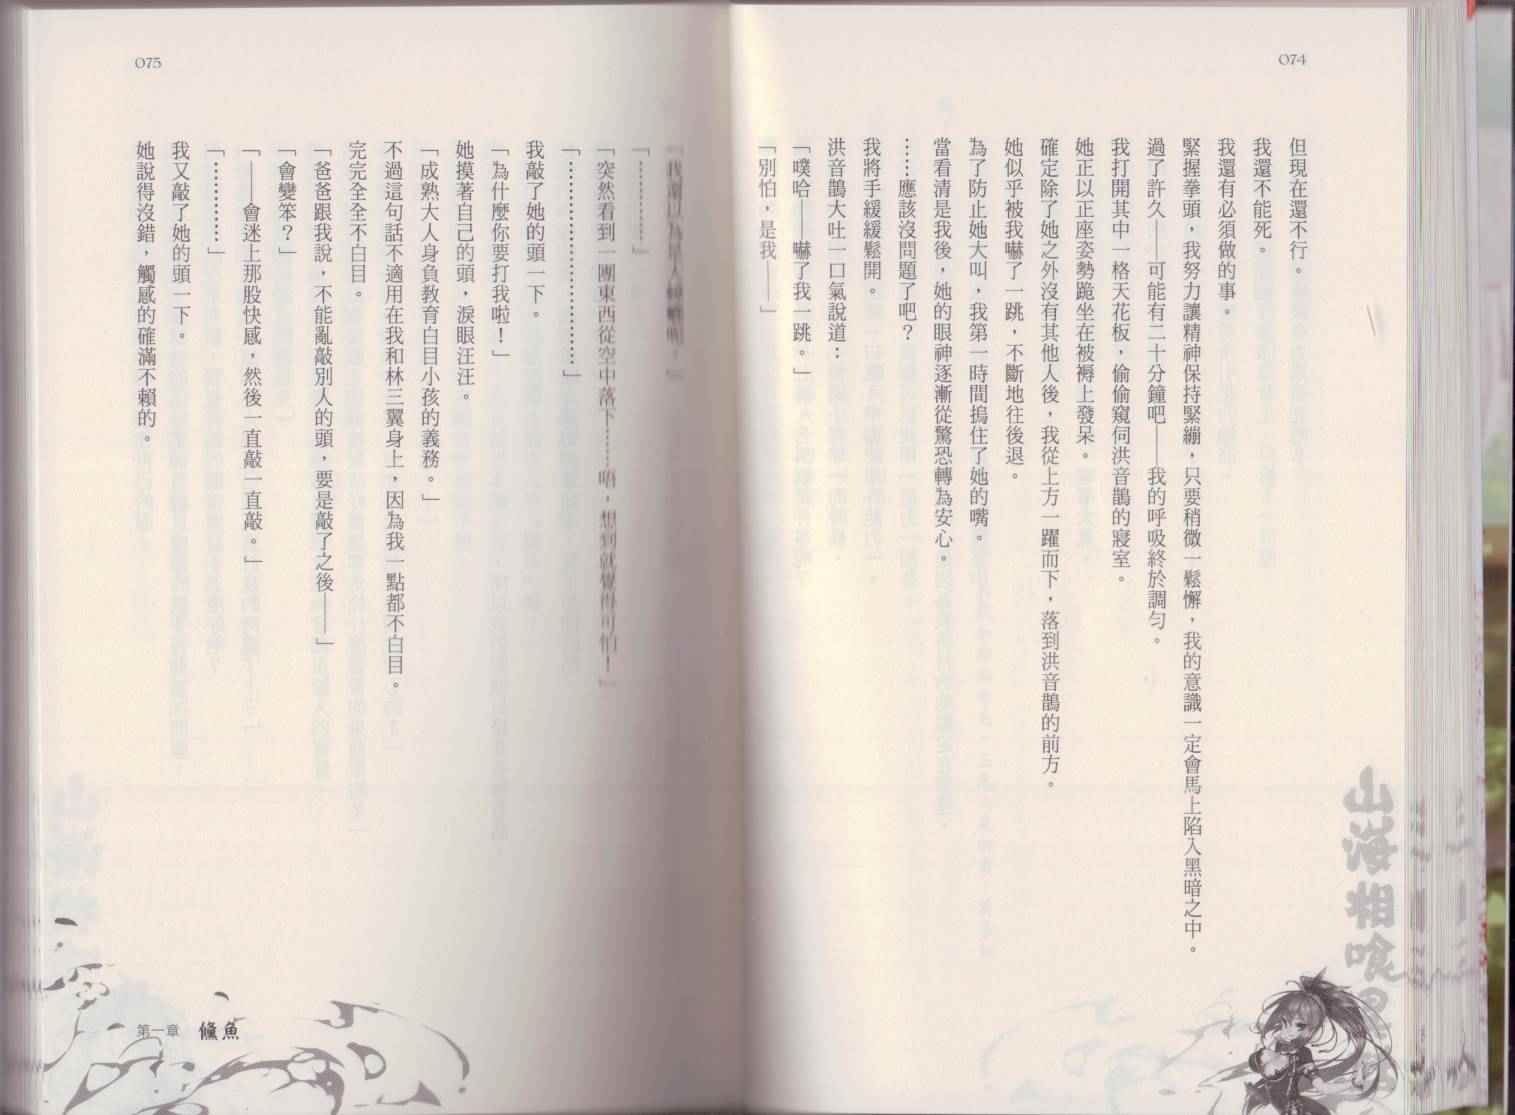 074
但現在還不行。
我還不能死。
我還有必須做的事。
緊握拳頭，我努力讓精神保持緊繃，只要稍微一鬆懈，我的意識一定會馬上陷入黑暗之中。
過了許久——可能有二十分鐘吧——我的呼吸終於調勻。
我打開其中一格天花板，偷偷窺伺洪音鵲的寢室。
她正以正座姿勢跪坐在被褥上發呆。
確定除了她之外沒有其他人後，我從上方一躍而下，落到洪音鵲的前方。
她似乎被我嚇了一跳，不斷地往後退。
為了防止她大叫，我第一時間摀住了她的嘴。
當看清是我後，她的眼神逐漸從驚恐轉為安心。
……應該沒問題了吧？
我將手緩緩鬆開。
洪音鵲大吐一口氣說道：
「噗哈——嚇了我一跳。」
「別怕，是我——」
山海相喰
075
「我還以為是人
「…………」
「突然看到一團東西從空中落下……唔，想到就覺得可怕！」
「…………………………」
我敲了她的頭一下。
「為什麼你要打我啦！」
她摸著自己的頭，淚眼汪汪。
「成熟大人身負教育白目小孩的義務。」
不過這句話不適用在我和林三翼身上，因為我一點都不白目。
完完全全不白目。
「爸爸跟我說，不能亂敲別人的頭，要是敲了之後——」
「會變笨？」
「——會迷上那股快感，然後一直敲一直敲。」
「…………」
我又敲了她的頭一下。
她說得沒錯，觸感的確滿不賴的。
第一章 鯈魚